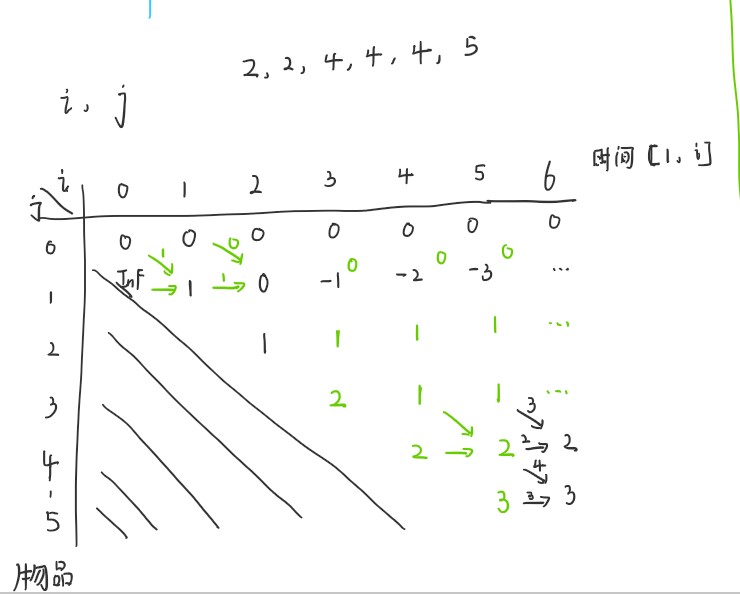 2, 2, 4, 4, 4, 5
i, j
时间 [1, i]
i 0 1 2 3 4 5 6
j
0 0 0 0 0 0 0 0
1 0 0 0 0
1 Inf 1 1 0 -1 -2 -3 ...
2 1 1 1 1 ...
3 2 1 1 ...
3
4 2 2 2 2
4
5 3 3 3
物品